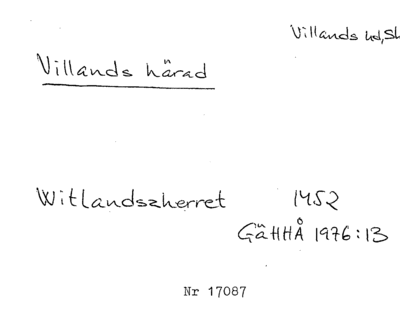 Villands hd, Sk
Villands härad
Witlandszherret 1452
GäHHÅ 1976:13
Nr 17087